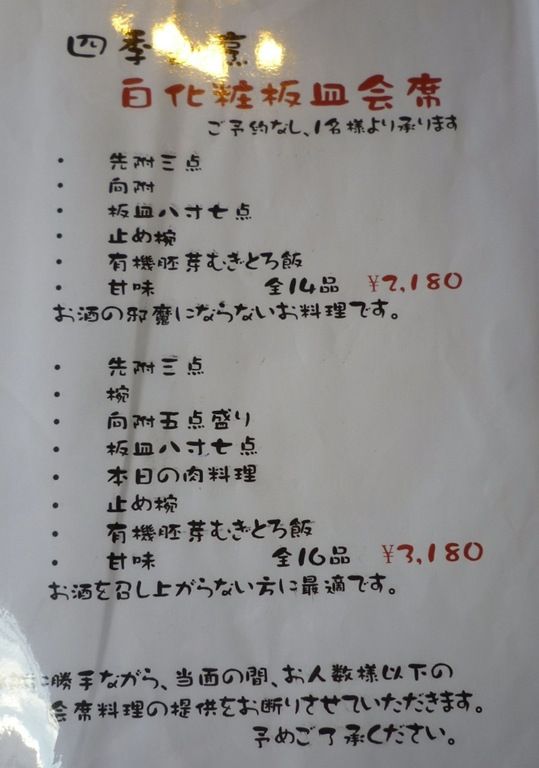 四季 烹
白化粧板皿会席
ご予約なし、1名様より承ります
・ 先附三点
・ 向附
・ 板皿八寸七点
・ 止め椀
・ 有機胚芽むぎとろ飯
・ 甘味 全14品 ¥2,180
お酒の邪魔にならないお料理です。
・ 先附三点
・ 椀
・ 向附五点盛り
・ 板皿八寸七点
・ 本日の肉料理
・ 止め椀
・ 有機胚芽むぎとろ飯
・ 甘味 全16品 ¥3,180
お酒を召し上がらない方に最適です。
勝手ながら、当面の間、お人数様以下の
会席料理の提供をお断りさせていただきます。
予めご了承ください。